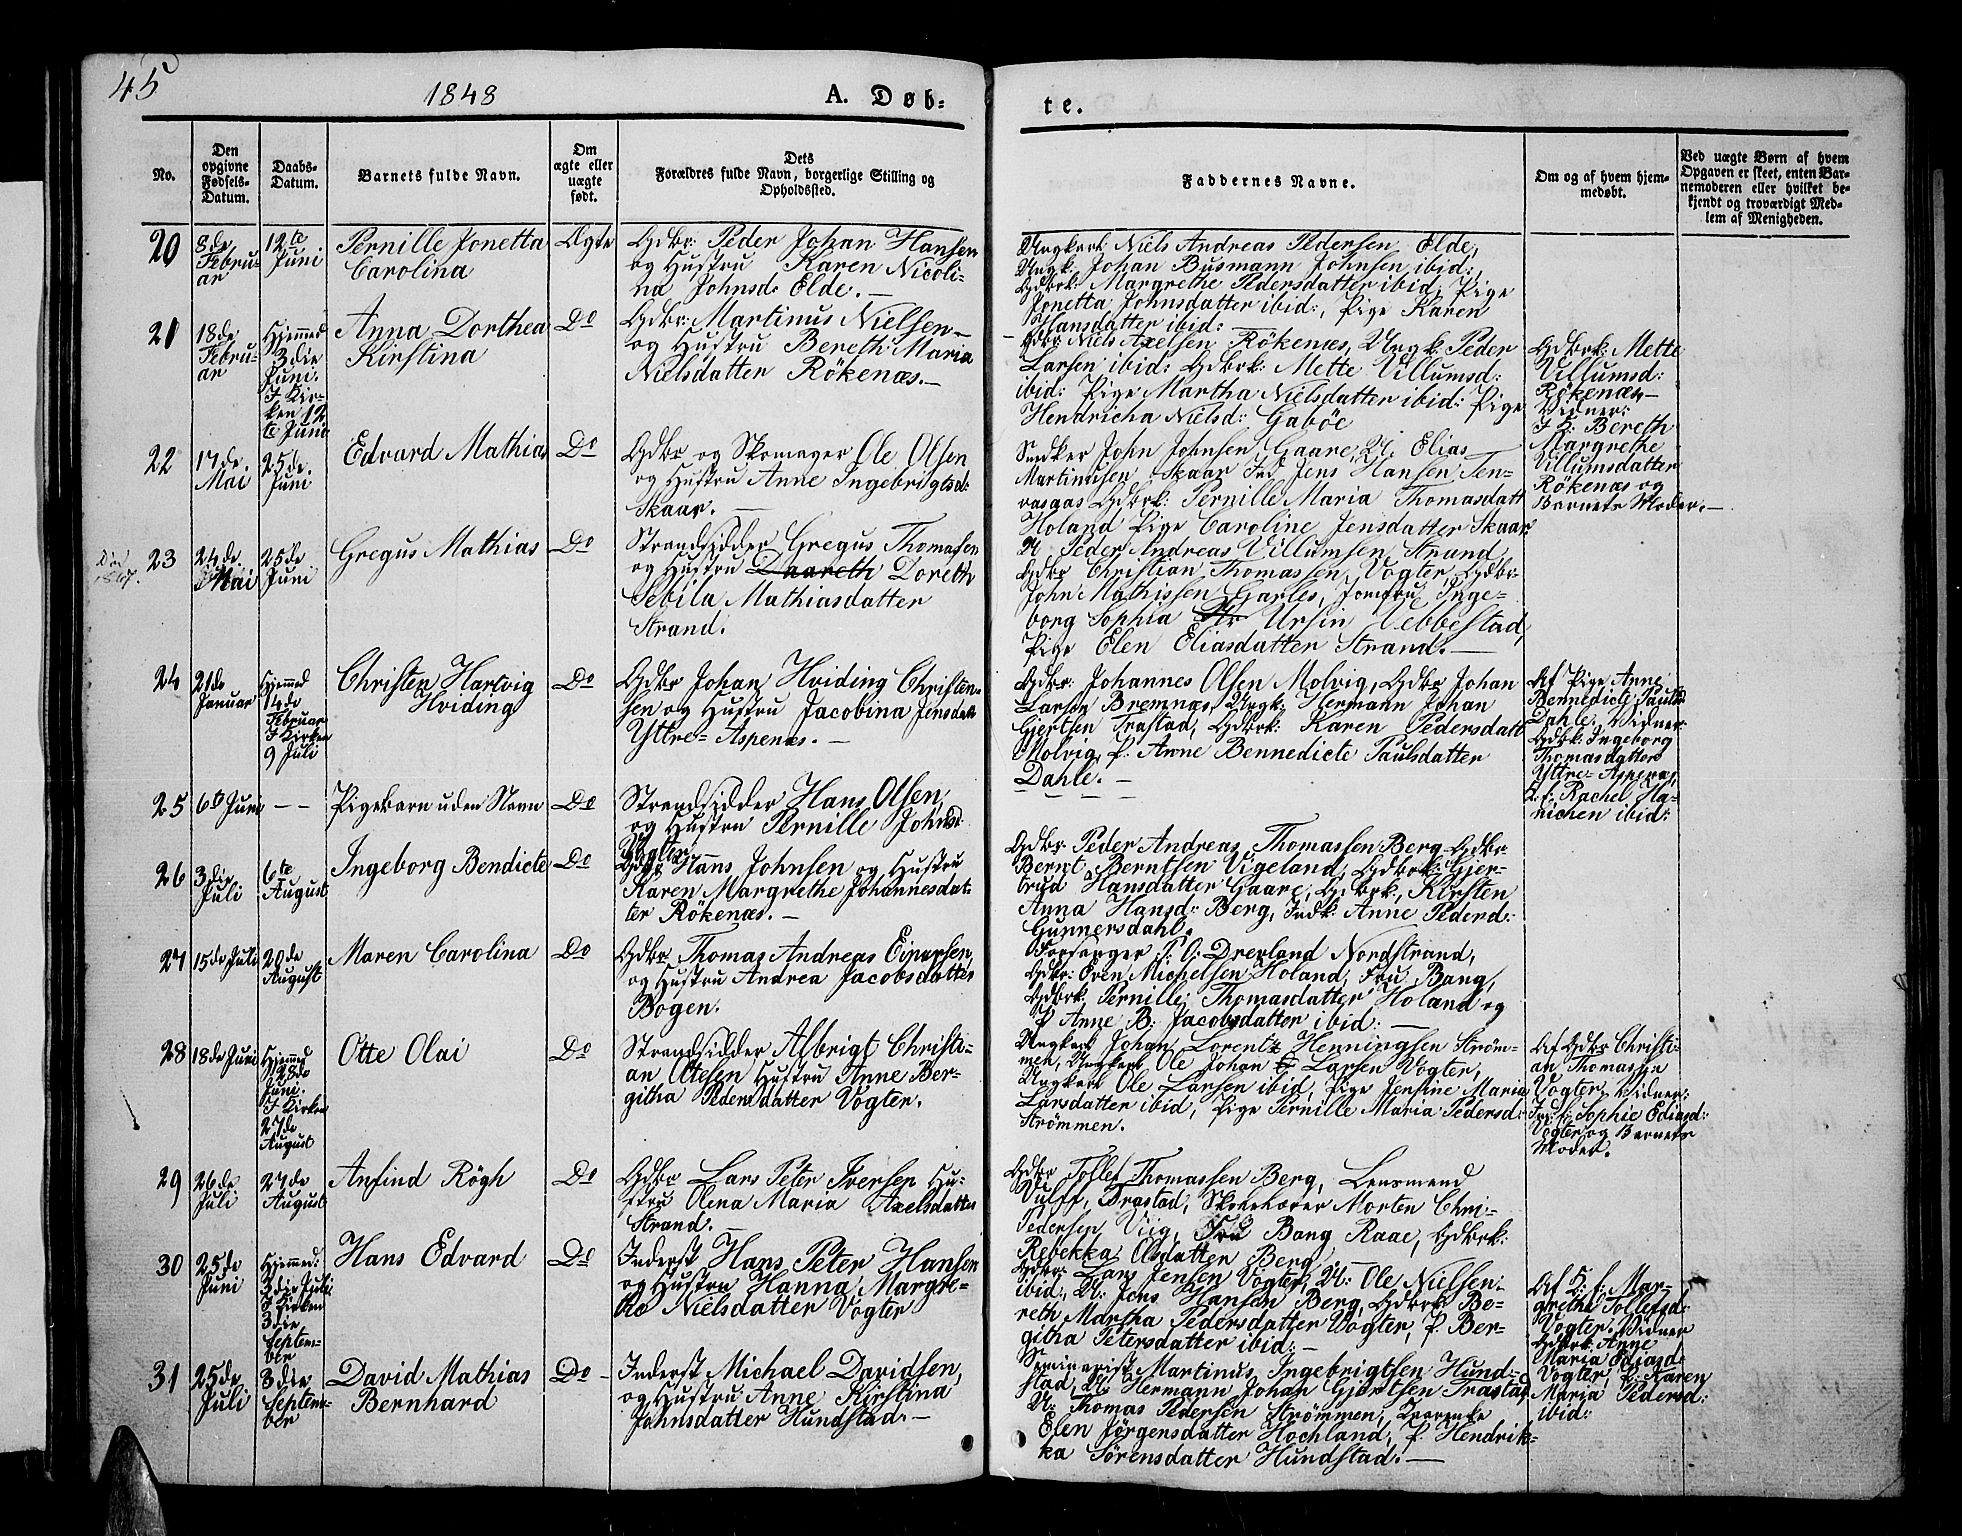 45
1848
A. Døb-
te.
No.
Den opgivne Fødsels-Datum.
Daabs-Datum.
Barnets fulde Navn.
Om ægte eller uægte født.
Dets Forældres fulde Navn, borgerlige Stilling og Opholdssted.
Faddernes Navne.
Om og af hvem hjem-medøbt.
Ved uægte Børn af hvem Opgaven er skeet, enten Bar-nemoderen eller hvilket be-kjendt og troværdigt Med-lem af Menigheden.
20
8de Febru-ar
12te Juni
Pernille Jonetta
Carolina
Ægte
Gdbr: Peder Johan Hansen
og Hustru Karen Nicoli-
na Johnsd: Elde.—
Ungkarl Niels Andreas Pedersen Elde,
Ungk: Johan Busmann Johnsen ibid:,
Gdbrk: Margrethe Pedersdatter ibid, Pige
Jonetta Johnsdatter ibid:, Pige Karen
Hansdatter ibid:
21
18de Febru-ar
Hjemmed 3die Juni. I Kir-ken 12te Juni
Anna Dorthea
Kirstina
Do
Gdbr: Martinus Nielsen
og Hustru Bereth Maria
Nielsdatter Rökenæs.—
Gdbr: Niels Axelsen Rökenæs, Ungk: Peder
Larsen ibid: Gdbrk: Mette Villumsd:
ibid: Pige Martha Nielsdatter ibid: Pige
Hendricha Nielsd: Gaböe
Gdbrk: Mette
Villumsd:
Rökenæs
Vidner:
J. H: Bereth
Margrethe
Villumsdatter
Rökenæs og
Barnets Moder.—
22
17de Mai
25de Juni
Edvard Mathias
Do
Gdbr og Skomager Ole Olsen
og Hustru Anne Ingebrigtsd:
Skaar.—
Snedker John Johnsen Gaare, U. Elias
Martinusen Skaar Ind Jens Hansen Ten-
vasaas Gdbrk: Pernille Maria Thomasdatt
Holand Pige Caroline Jensdatter Skaar
Død 1847.
23
24de Mai
25de Juni
Gregus Mathias
Do
Strandsidder Gregus Thomassen
og Hustru Daareth Doreth
Sebila Mathiasdatter
Strand.
U. Peder Andreas Villumsen Strand,
Gdbr Christian Thomassen Vogter, Gdbr
John Mathissen Garles, Jomfru Inge-
borg Sophia Ursin Vebbestad,
Pige Elen Eliasdatter Strand.—
24
21de Januar
Hjemmed 14de Februar I Kirken 9 Juli
Christen Hartvig
Hviding
Do
Gdbr Johan Hviding Christen-
sen og Hustru Jacobina Jensdatt
Yttre-Aspenæs.—
Gdbr: Johannes Olsen Molvig, Gdbr Johan
Larsen Bremnæs, Ungk: Hermann Johan
Gjertsen Trastad, Gdbrk: Karen Pedersdatt
Molvig, P. Anne Bennedicte Paulsdatter
Dahle.—
Af Pige Anne
Bennedicte Paulsd
Dahle, Vidner:
Gdbk: Ingeborg
Thomasdatter
Yttre-Aspenæs,
Rachel Ha-
nichen ibid:
25
6te Juni
— —
Pigebarn uden Navn
Do
Strandsidder Hans Olsen,
og Hustru Pernille Johnsd
Vogter
26
3die Juli
6te August
Ingeborg Bendicte
Do
Gdbr Hans Johnsen og Hustru
Karen Margrethe Johannesdat-
ter Rökenæs.—
Gdbr: Peder Andreas Thomassen Berg, Gdbr
Bernt Berntsen Vigeland, Gdbrk: Gjer-
trud Hansdatter Gaare, Gdbrk, Kirsten
Anna Hansd: Berg, Indk: Anne Pederd:
Gunnersdahl.
27
15de Juli
20de August
Maren Carolina
Do
Gdbr Thomas Andreas Einarsen
og Hustru Andrea Jacobsdatter
Bogen.
Forsanger P. O: Drevland Nordstrand,
Gdbr: Even Michelsen Holand, Fru Bang,
Gdbrk: Pernille Thomasdatter Holand og
P Anne B: Jacobsdatter ibid:—
28
18de Juni
Hjemmed 28de Juni. I Kirken 27de August
Otte Olai
Do
Strandsidder Albrigt Christi-
an Ottesen Hustru Anne Ber-
githa Pedersdatter Vogter.
Ungkarl Johan Lorentz Henningsen Ström-
men, Ungkarl Ole Johan Larsen Vogter,
Ungkarl Ole Larsen ibid, Pige Jensine Maria
Larsdatter ibid, Pige Pernille Maria Pedersd:
Strömmen.
Af Gdbr Christi-
an Thomassen
Vogter, Vidner:
Sophie Ediasd:
Vogter og Barnets
Moder.
29
26de Juli
27de August
Anfind Rögh
Do
Gdbr Lars Peter Iversen Hu-
stru Olena Maria Axelsdatter
Strand.—
Gdbr Tollef Thomassen Berg, Lensmand
Vulff, Trastad, Skolelærer Morten Chri-
Pedersen Viig, Fru Bang Raae, Gdbrk:
Rebekka Olsdatter Berg
30
25de Juni
Hjemmed: 3die Juli. I Kirken 3die Septem-ber
Hans Edvard
Do
Inderst Hans Peter Hansen
og Hustru Hanna Margre-
the Nielsdatter Vogter
Gdbr: Lars Jensen Vogter, U: Ole Nielsen
ibid:, U: Jens Hansen Berg, Gdbrk Be-
reth Martha Pedersdatter Vogter, P. Ber-
githa Petersdatter ibid:—
Af H: f. Mar-
grethe Tollefsd:
Vogter, Vidner
Gdbrk: Anne
Maria Ediasd:
Vogter, P. Karen
Maria Pedersd:
ibid:
31
25de Juli
3die Septem-ber
David Mathias
Bernhard
Do
Inderst Michael Davidsen,
og Hustru Anne Kirstina
Johnsdatter Hundstad.—
Seminarist Martinus Ingebrigtsen Hund-
stad, U: Hermann Johan Gjertsen Trastad,
U: Thomas Pedersen Strömmen, Kaarenke
Elen Jörgensdatter Hochland, P. Hendrik-
ka Sörensdatter Hundstad.—